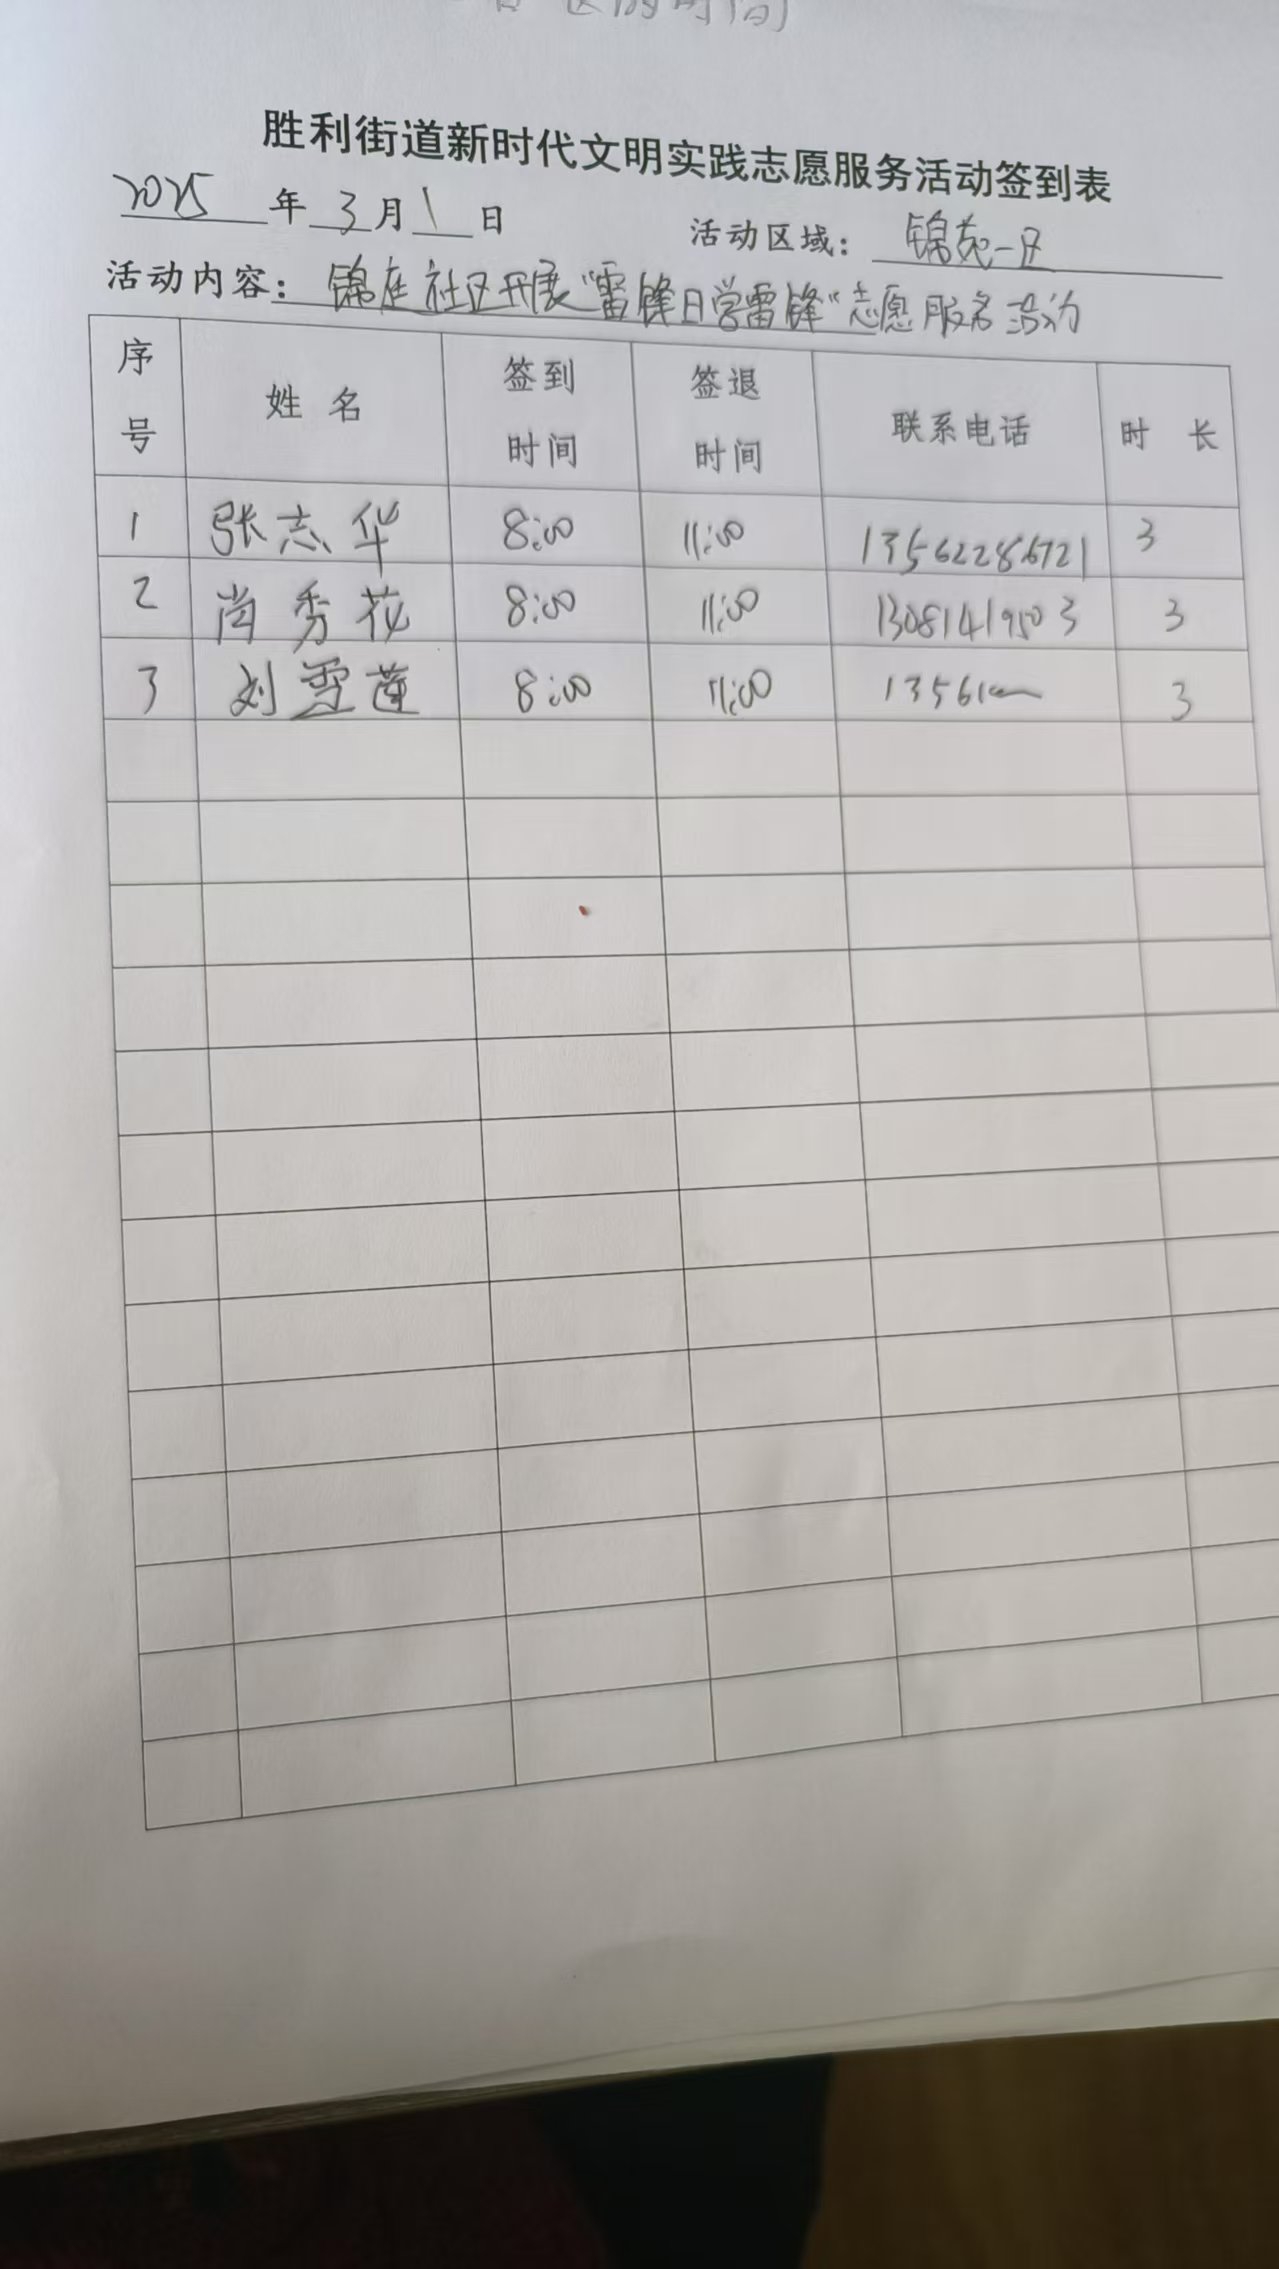 胜利街道新时代文明实践志愿服务活动签到表
2025 年 3 月 1 日 活动区域: 锦苑一区
活动内容: 锦庄社区开展“雷锋日学雷锋”志愿服务活动
序号 姓名 签到时间 签退时间 联系电话 时 长
1 张志华 8:00 11:00 13562286721 3
2 尚秀花 8:00 11:00 13081419503 3
3 刘雪莲 8:00 11:00 13561 3